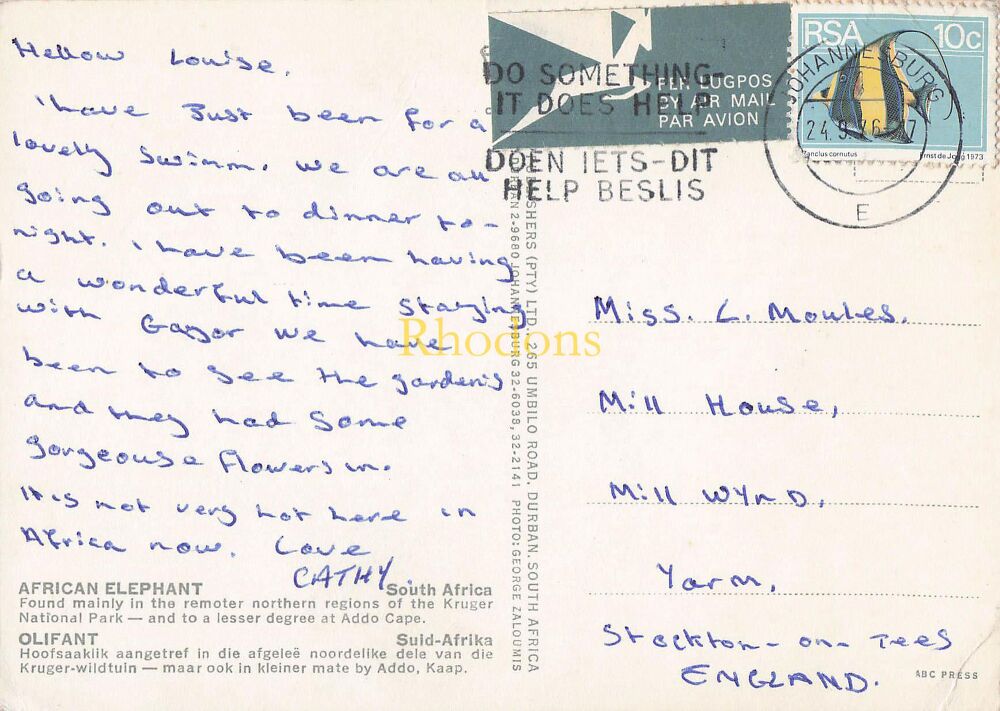 Hellow Louise,
I have Just been for a
lovely swimm. we are all
going out to dinner to-
night. I have been having
a wonderful time staying
with we have
been to see the gardens
and they had some
gorgeouse flowers in.
It is not very hot here in
Africa now. Love
CATHY.
AFRICAN ELEPHANT South Africa
Found mainly in the remoter northern regions of the Kruger
National Park — and to a lesser degree at Addo Cape.
OLIFANT Suid-Afrika
Hoofsaaklik aangetref in die afgeleë noordelike dele van die
Kruger-wildtuin — maar ook in kleiner mate by Addo, Kaap.
DO SOMETHING-
IT DOES HELP
DOEN IETS-DIT
HELP BESLIS
PER LUGPOS
BY AIR MAIL
PAR AVION
RSA 10c
cornutus Ernst de Jong 1973
JOHANNESBURG
E
PUBLISHERS (PTY) LTD., 265 UMBILO ROAD, DURBAN, SOUTH AFRICA
JOHANNESBURG 32-6038, 32-2141 PHOTO: GEORGE ZALOUMIS
Rhodons
Miss. L. Moules.
Mill House,
Mill WYND,
Yarm,
Stockton-on-Tees
ENGLAND.
ABC PRESS